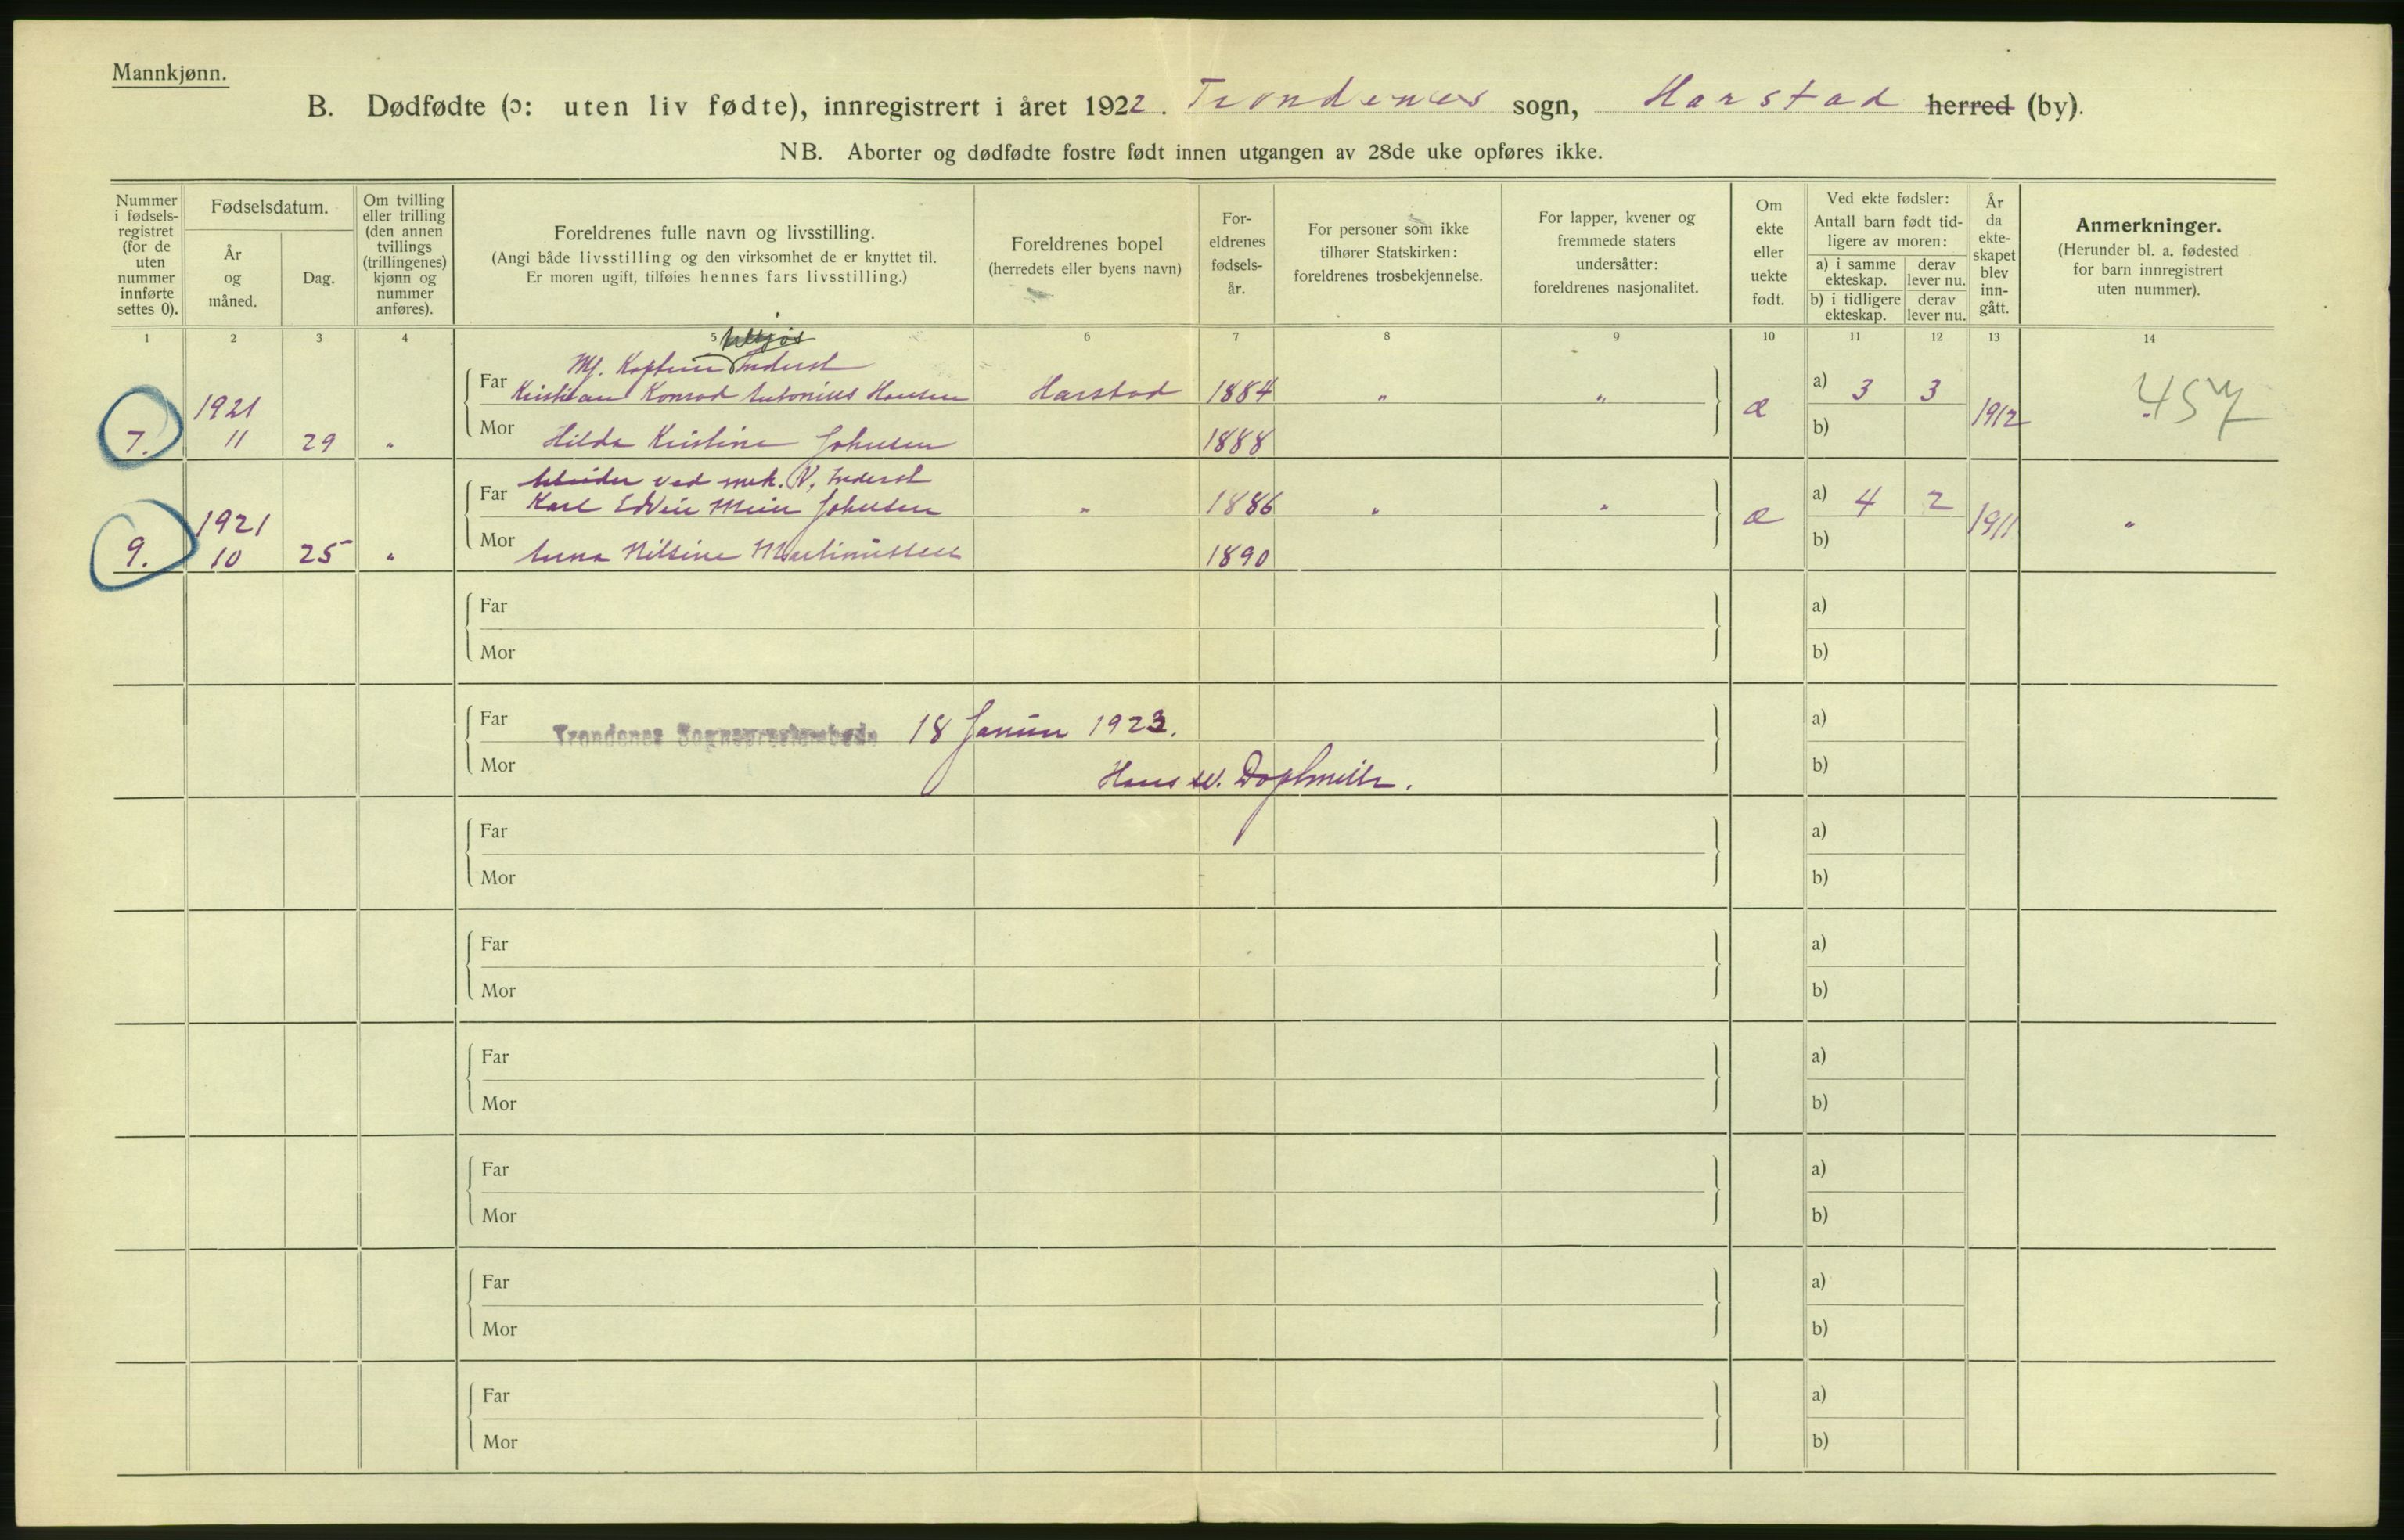 Mannkjønn.
B. Dødfødte (ɔ: uten liv fødte), innregistrert i året 1922. Trondenes sogn, Harstad herred (by).
NB. Aborter og dødfødte fostre født innen utgangen av 28de uke opføres ikke.
Nummer
i fødsels-
registret
(for de
uten
nummer
innførte
settes 0).
Fødselsdatum.
År
og
måned.
Dag.
Om tvilling
eller trilling
(den annen
tvillings
(trillingenes)
kjønn og
nummer
anføres).
Foreldrenes fulle navn og livsstilling.
(Angi både livsstilling og den virksomhet de er knyttet til.
Er moren ugift, tilføies hennes fars livsstilling.)
Foreldrenes bopel
(herredets eller byens navn)
For-
eldrenes
fødsels-
år.
For personer som ikke
tilhører Statskirken:
foreldrenes trosbekjennelse.
For lapper, kvener og
fremmede staters
undersåtter:
foreldrenes nasjonalitet.
Om
ekte
eller
uekte
født.
Ved ekte fødsler:
Antall barn født tid-
ligere av moren:
a) i samme
ekteskap.
derav
lever nu.
b) i tidligere
ekteskap.
derav
lever nu.
År
da
ekte-
skapet
blev
inn-
gått.
Anmerkninger.
(Herunder bl. a. fødested
for barn innregistrert
uten nummer).
1 2 3 4 5 6 7 8 9 10 11 12 13 14
Far Kristian Konrad Antonius Hansen Harstad 1884 " " a) 3 3
7. 1921 11 29 " æ 1912 " 457
Mor Hilda Kristine Johnsen 1888 b)
Arbeider ved mek. V, Inderst
Far Karl Edvin Meier Johnsen " 1886 " " a) 4 2
9. 1921 10 25 " æ 1911 "
Mor Anna Nilsine Martinussen 1890 b)
Far a)
Mor b)
Far Trondenes Sogneprestembede 18 Januar 1923. a)
Mor Hans b)
Far a)
Mor b)
Far a)
Mor b)
Far a)
Mor b)
Far a)
Mor b)
Far a)
Mor b)
Far a)
Mor b)